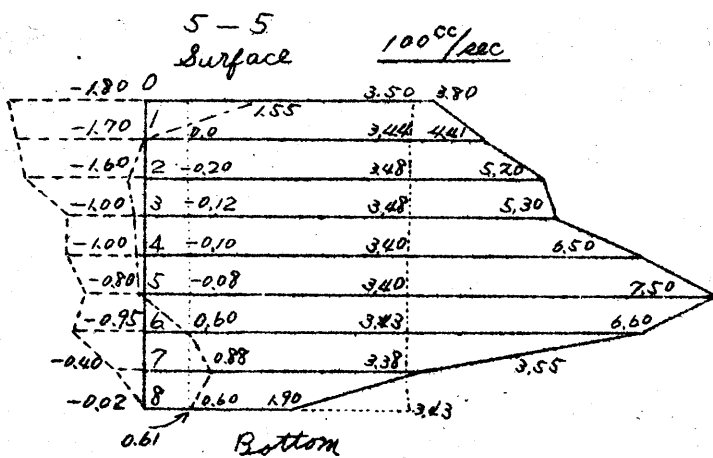 5 – 5
Surface
100 cc/sec
-1.80 0 3.50 3.80
1.55
-1.70 1 0.0 3.44 4.41
-1.60 2 -0.20 3.48 5.20
-1.00 3 -0.12 3.48 5.30
-1.00 4 -0.10 3.40 6.50
-0.80 5 -0.08 3.40 7.50
-0.95 6 0.60 3.43 6.60
-0.40 7 0.88 3.38 3.55
-0.02 8 0.60 1.90 3.43
0.61
Bottom